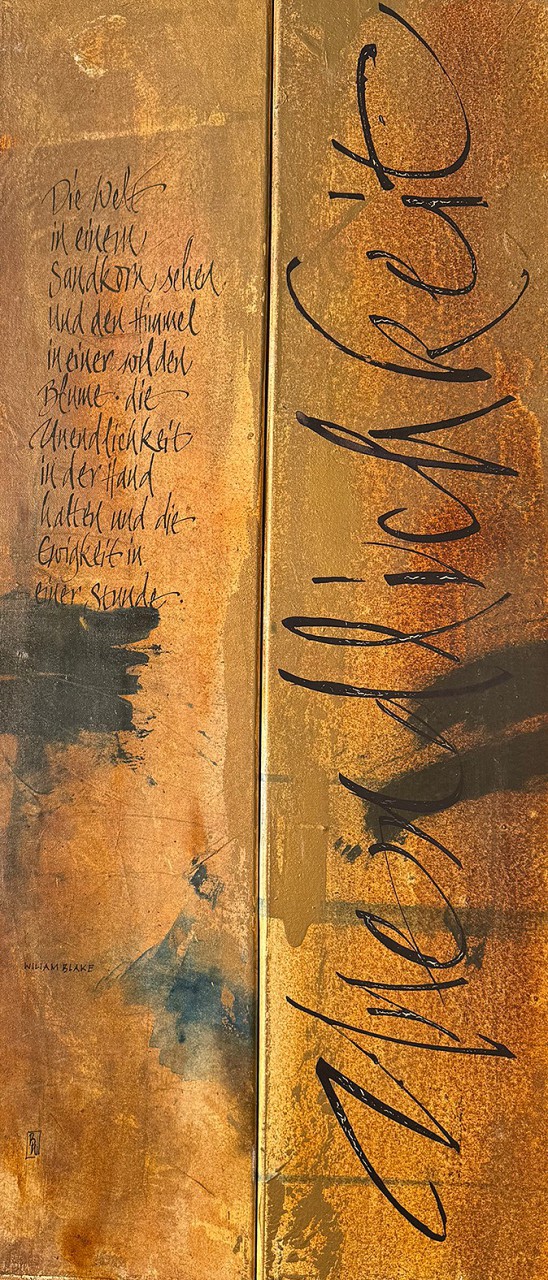 Die Welt
in einem
Sandkorn sehen
und den Himmel
in einer wilden
Blume · die
Unendlichkeit
in der Hand
halten und die
Ewigkeit in
einer Stunde ·
WILIAM BLAKE
Unendlichkeit